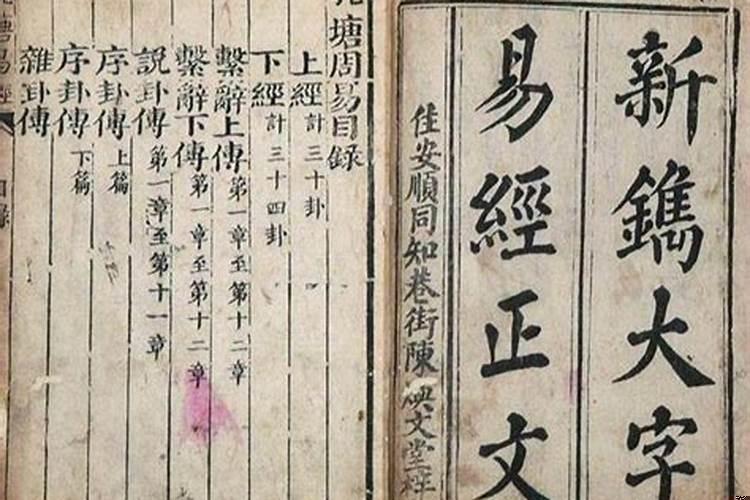 新鐫大字
易經正文
住安順同知巷街陳
文堂梓
塘周易目錄
上經計三十卦
下經計三十四卦
繫辭上傳第一章至第十二章
繫辭下傳第一章至第十二章
說卦傳第一章至第十一章
序卦傳上篇
序卦傳下篇
雜卦傳